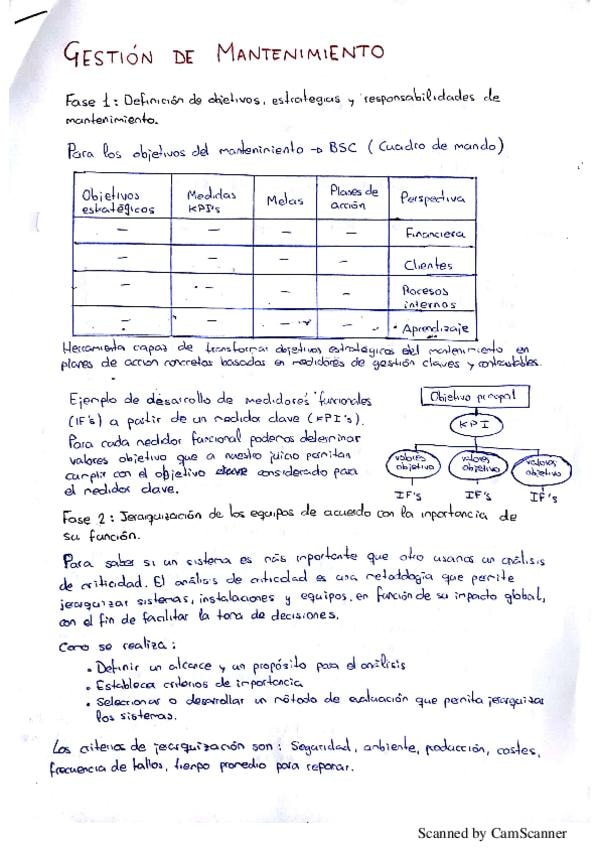 GESTIÓN DE MANTENIMIENTO
Fase 1: Definición de objetivos, estrategias y responsabilidades de
mantenimiento.
Para los objetivos del mantenimiento → BSC (Cuadro de mando)
Objetivos estratégicos | Medidas KPI's | Metas | Planes de acción | Perspectiva
– | – | – | – | Financiera
– | – | – | – | Clientes
– | – | – | – | Procesos internos
– | – | – | – | Aprendizaje
Herramienta capaz de transformar objetivos estratégicos del mantenimiento en
planes de acción concretos basados en medidores de gestión claves y contrastables.
Ejemplo de desarrollo de medidores funcionales
(IF's) a partir de un medidor clave (KPI's).
Para cada medidor funcional podemos determinar
valores objetivo que a nuestro juicio permitan
cumplir con el objetivo clave considerado para
el medidor clave.
Objetivo principal
KPI
valores objetivo
valores objetivo
valores objetivo
IF's
IF's
IF's
Fase 2: Jerarquización de los equipos de acuerdo con la importancia de
su función.
Para saber si un sistema es más importante que otro usamos un análisis
de criticidad. El análisis de criticidad es una metodología que permite
jerarquizar sistemas, instalaciones y equipos, en función de su impacto global,
con el fin de facilitar la toma de decisiones.
Como se realiza:
• Definir un alcance y un propósito para el análisis
• Establecer criterios de importancia
• Seleccionar o desarrollar un método de evaluación que permita jerarquizar
los sistemas.
Los criterios de jerarquización son: Seguridad, ambiente, producción, costes,
frecuencia de fallos, tiempo promedio para reparar.
Scanned by CamScanner